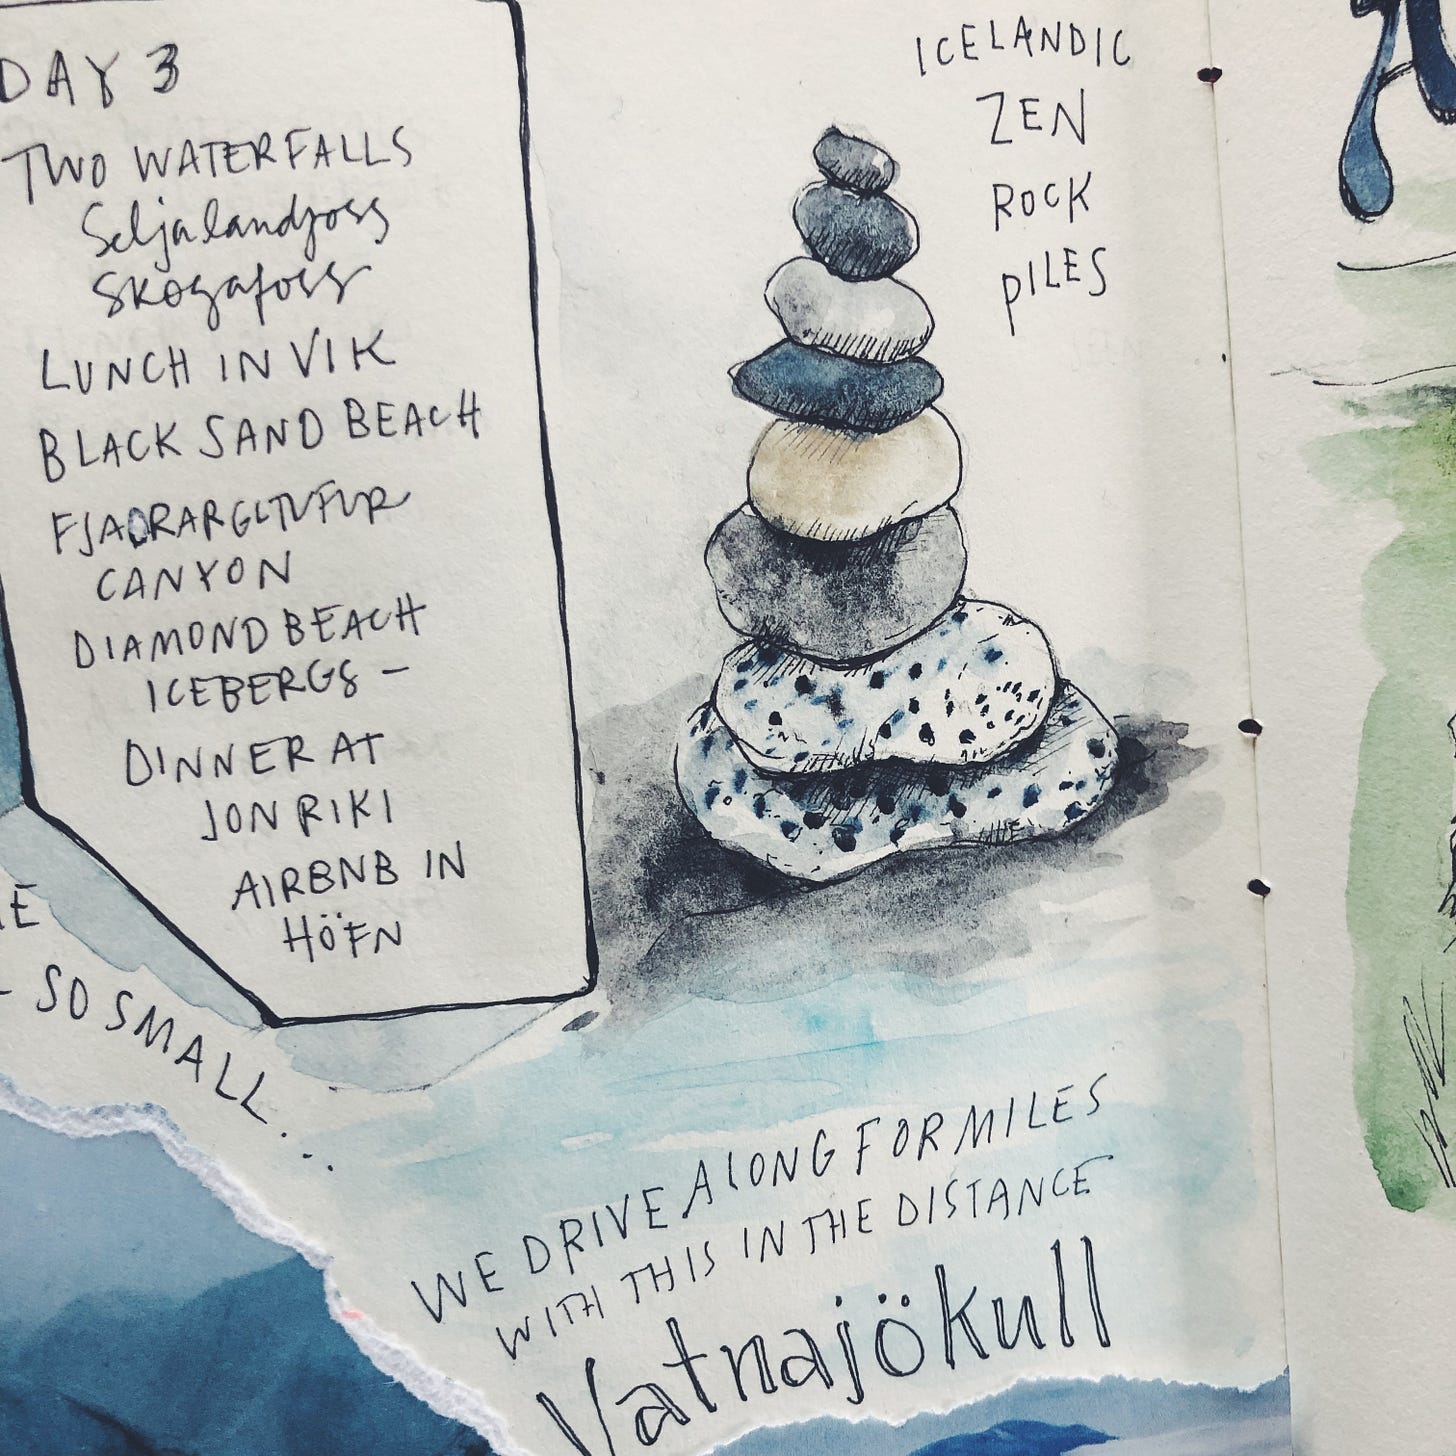 DAY 3
TWO WATERFALLS
Seljalandfoss
Skogafoss
LUNCH IN VIK
BLACK SAND BEACH
FJAÐRARGLTUFUR
CANYON
DIAMOND BEACH
ICEBERGS –
DINNER AT
JON RIKI
AIRBNB IN
HÖFN
SO SMALL...
ICELANDIC
ZEN
ROCK
PILES
WE DRIVE ALONG FOR MILES
WITH THIS IN THE DISTANCE
Vatnajökull